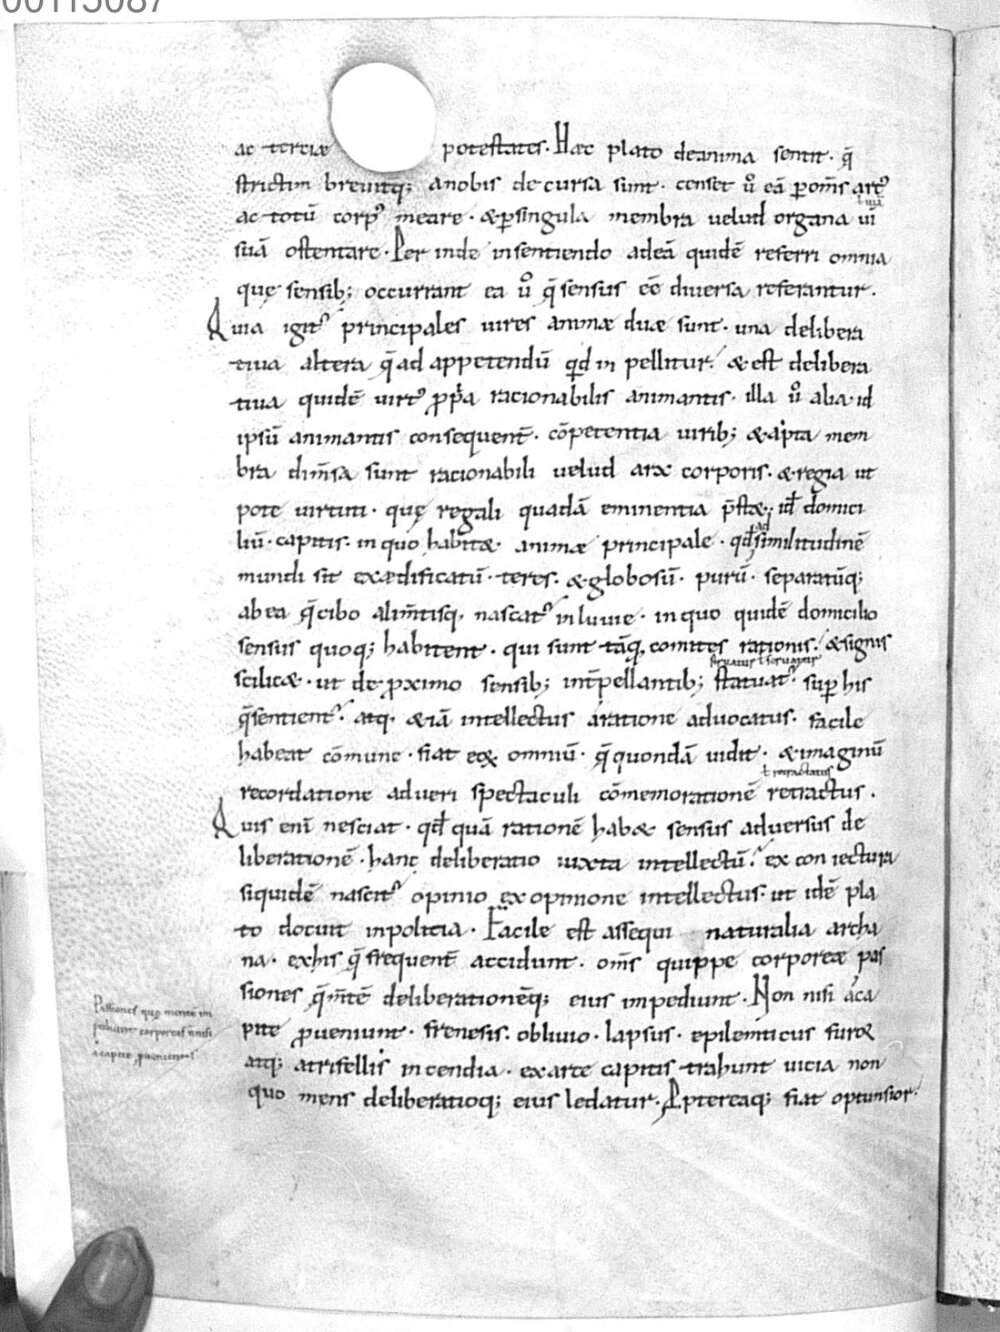 00115087
ac terciæ potestates. Hæc plato deanima sentit. q̄
strictim breuitq; anobis decursa sunt. censet ů eā ꝑom̄s art᷒
ł uiā
ac totū corp᷒ meare. & ꝑsingula membra uelud organa uī
suā ostentare. Per inde insentiendo adeā quidē referri omnia
quę sensib; occurrant ea ů q̄ sensus eē diversa referantur.
Quia igit᷒ principales uires animæ duæ sunt. una delibera
tiua altera q̄ ad appetendū qđ in pellitur. & est delibera
tiua quidē uirt᷒ ꝓp̄a racionabilis animantis. illa ů alia. id
ipsū animantis consequent̄. cōpetentia uirib; & apta mem
bra dim̄sa sunt racionabili uelud arx corporis. & regia ut
pote uirtuti. quę regali quadā eminentia p̄st&; id domici
ad
liū. capitis. in quo habit&. animæ principale. qđ similitudinē
mundi sit exædificatū. teres. & globosū. purū. separatūq;
ab ea q̄ cibo alim̄tisq, nascat᷒ inluuie. in quo quidē domicilio
sensus quoq; habitent. qui sunt tāq, comites rationis. & signis
statuatur ł seruatur
scilic&. ut de ꝓximo sensib; int̄pellantib; statuat᷒. suꝑ his
q̄ sentient᷒. atq. & iā intellectus aratione aduocatus. facile
habeat cōmune. fiat eex omniū. q̄ quondā uidit. & imaginū
ł retractatus
recordatione adueri spectaculi cōmemorationē retractus.
Quis enī nesciat. qđ quā rationē hab& sensus aduersus de
liberationē. hanc deliberatio iuxta intellectū. ex coniectura
siquidē nascit᷒ opinio ex opinione intellectus. ut idē pla
to docuit inpolitia. Facile est assequi naturalia archa
na. exhis q̄ frequent̄ accidunt. om̄s quippe corporeæ pas
siones q̄ m̄tē deliberationēq; eius impediunt. Non nisi aca
pite ꝓueniunt. frenesis. obliuio. lapsus. epilemticus furor
atq; atrifellis incendia. exarce capitis trahunt uicia non
quo mens deliberatioq; eius ledatur. Aptereaq; fiat optunsior.
Passiones quę mentē im
pediunt corporeas n̄nisi
a capite ꝓuenient